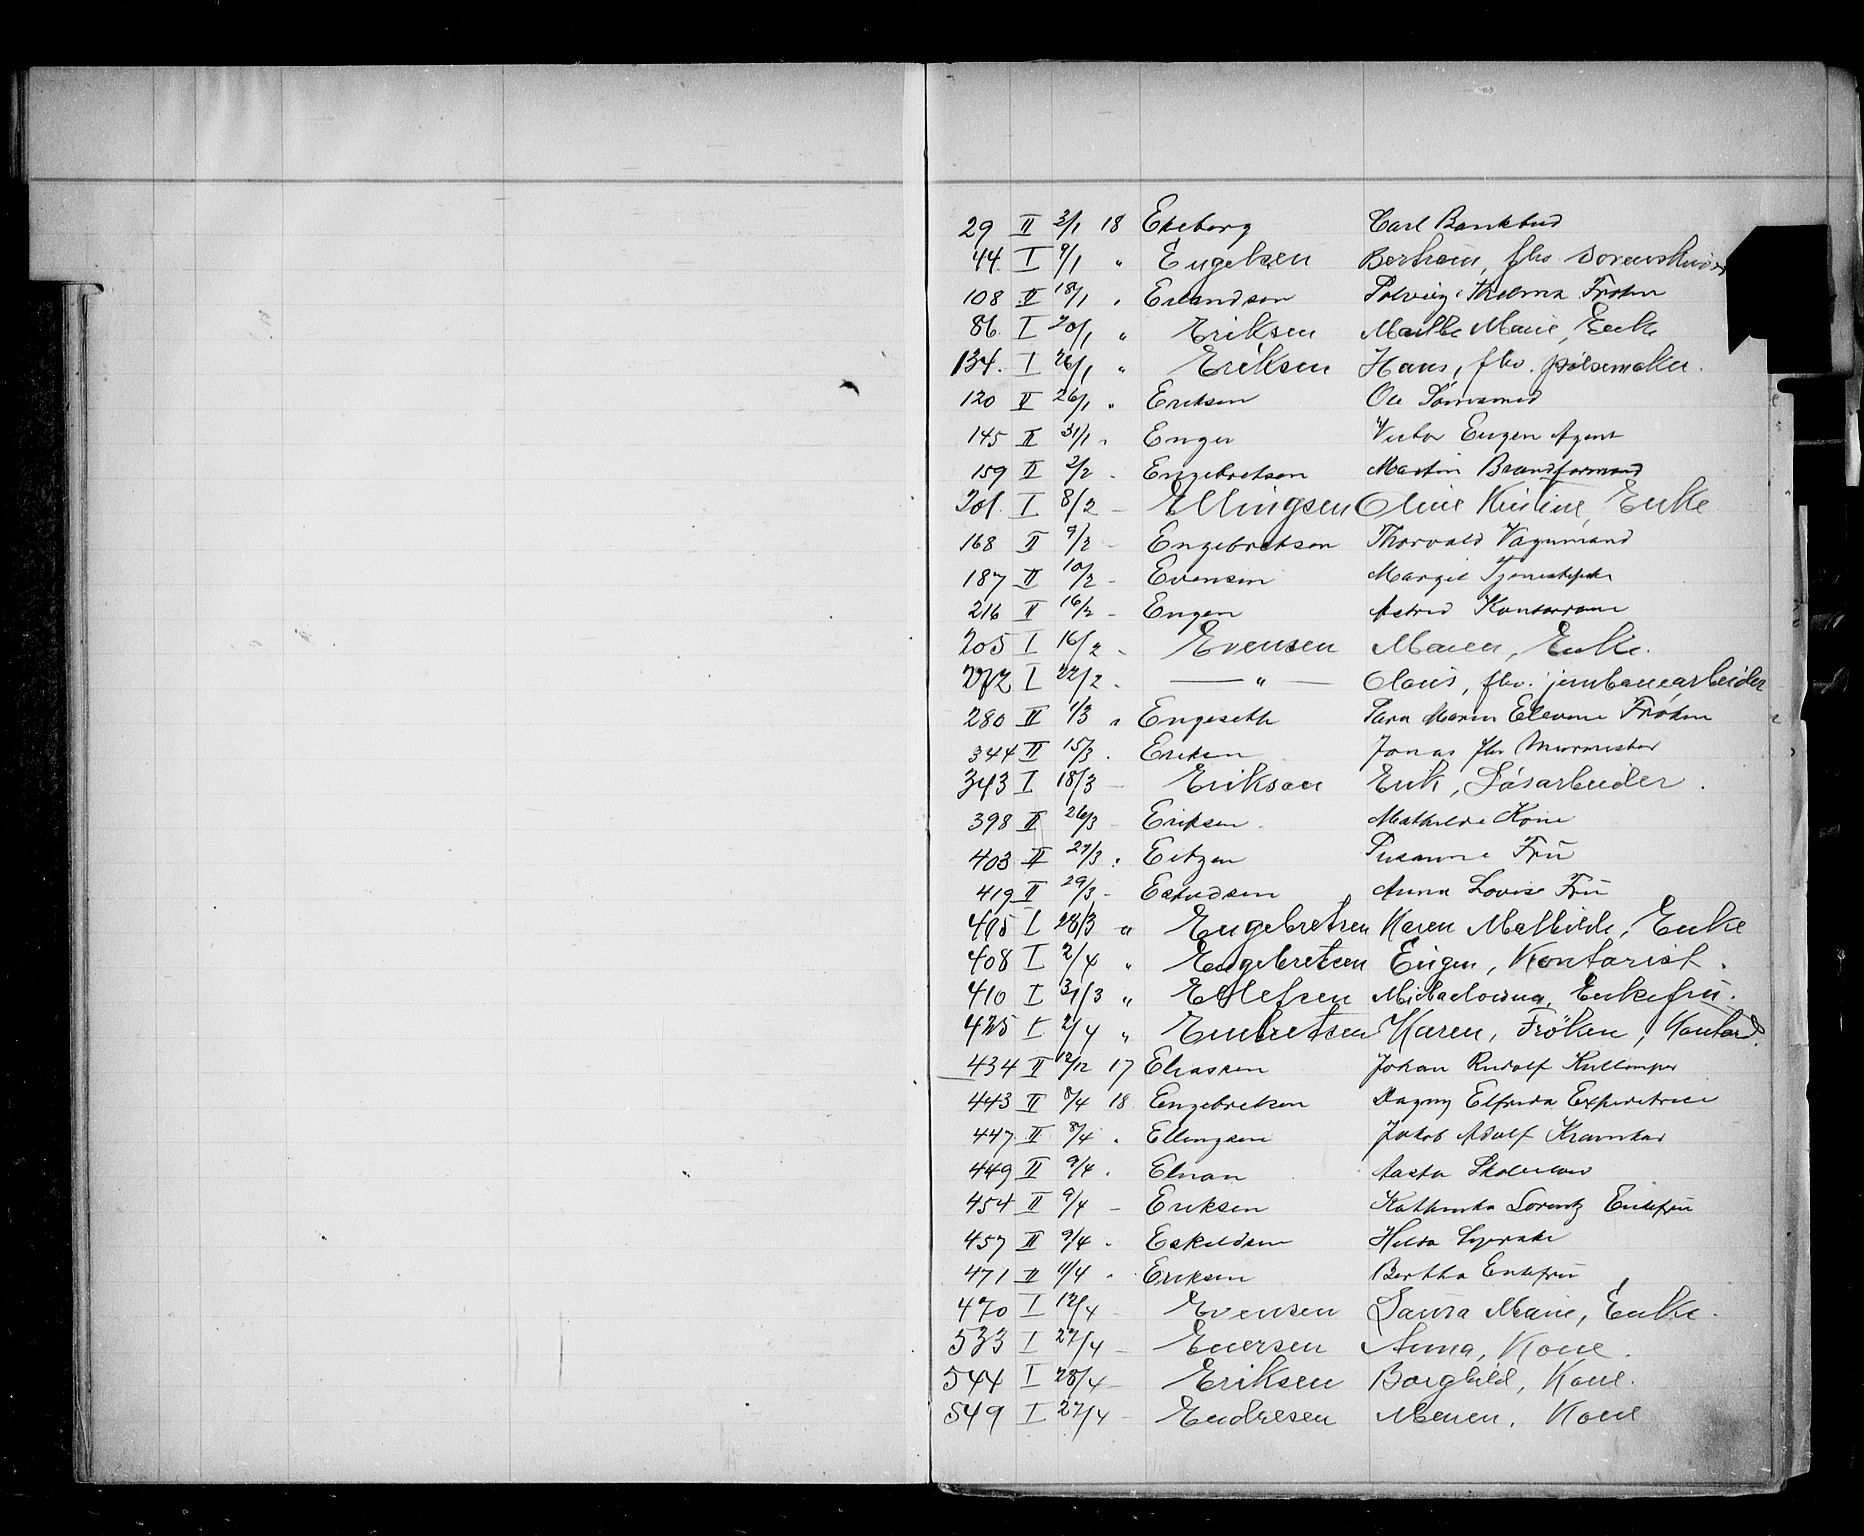 29 II 3/1 18 Ekeberg Carl Bankbud
44 I 9/1 " Engelsen Bertram, fhv.
108 II 18/1 " Erlandsen Solveig Thelma Frøken
86 I 20/1 " Eriksen Marie, Enke
134. I 26/1 " Eriksen Hans, fhv. pølsemaker.
120 II 26/1 " Eriksen Ole
145 II 31/1 " Enger Victor Eugen Agent
159 II 2/2 - Engebretsen Martin Brandformand
201. I 8/2 - Ellingsen Oline Kristine, Enke
168 II 9/2 - Engebretsen Thorvald Vognmand
187 II 10/2 - Evensen Margit Tjenestepike
216 II 16/2 - Engen Astrid Kontordame
205 I 16/2 - Evensen Maren, Enke.
272 I 22/2 - — " — Olaus, fhv. jernbanearbeider
280 II 1/3 " Engeseth Sara Maren Elevine Frøken
344 II 15/3 . Eriksen Jonas fhv Murmester
343 I 18/3 - Erikson Erik, Løsarbeider.
398 II 26/3 - Eriksen Mathilde Kone
403 II 27/3 . Eitzen Susanne Frú
419 II 29/3 - Anna Lovise Frú
405 I 28/3 " Engebretsen Karen Mathilde, Enke
408 I 2/4 " Engebretsen Eúgen, Kontorist.
410 I 31/3 " Ellefsen Enkefrú.
425 I 2/4 " Embretsen Karen, Frøken, Kontord.
434 II 12/12 17 Eliassen Johan Rudolf
443 II 8/4 18 Engebretsen Dagny Elfrida Expeditrice
447 II 8/4 . Ellingsen Jakob Adolf
449 II 9/4 . Elnan Aasta
454 II 9/4 - Eriksen Kathinka Lorentz Enkefrú
457 II 9/4 . Eskildsen Hilda
471 II 11/4 . Eriksen Bertha Enkefrú
470 I 12/4 - Evensen Laura Marie, Enke.
533 I 27/4 - Enersen Anna, Kone.
544 I 28/4 - Eriksen Borghild, Kone.
549 I 27/4 - Endresen Maren, Kone